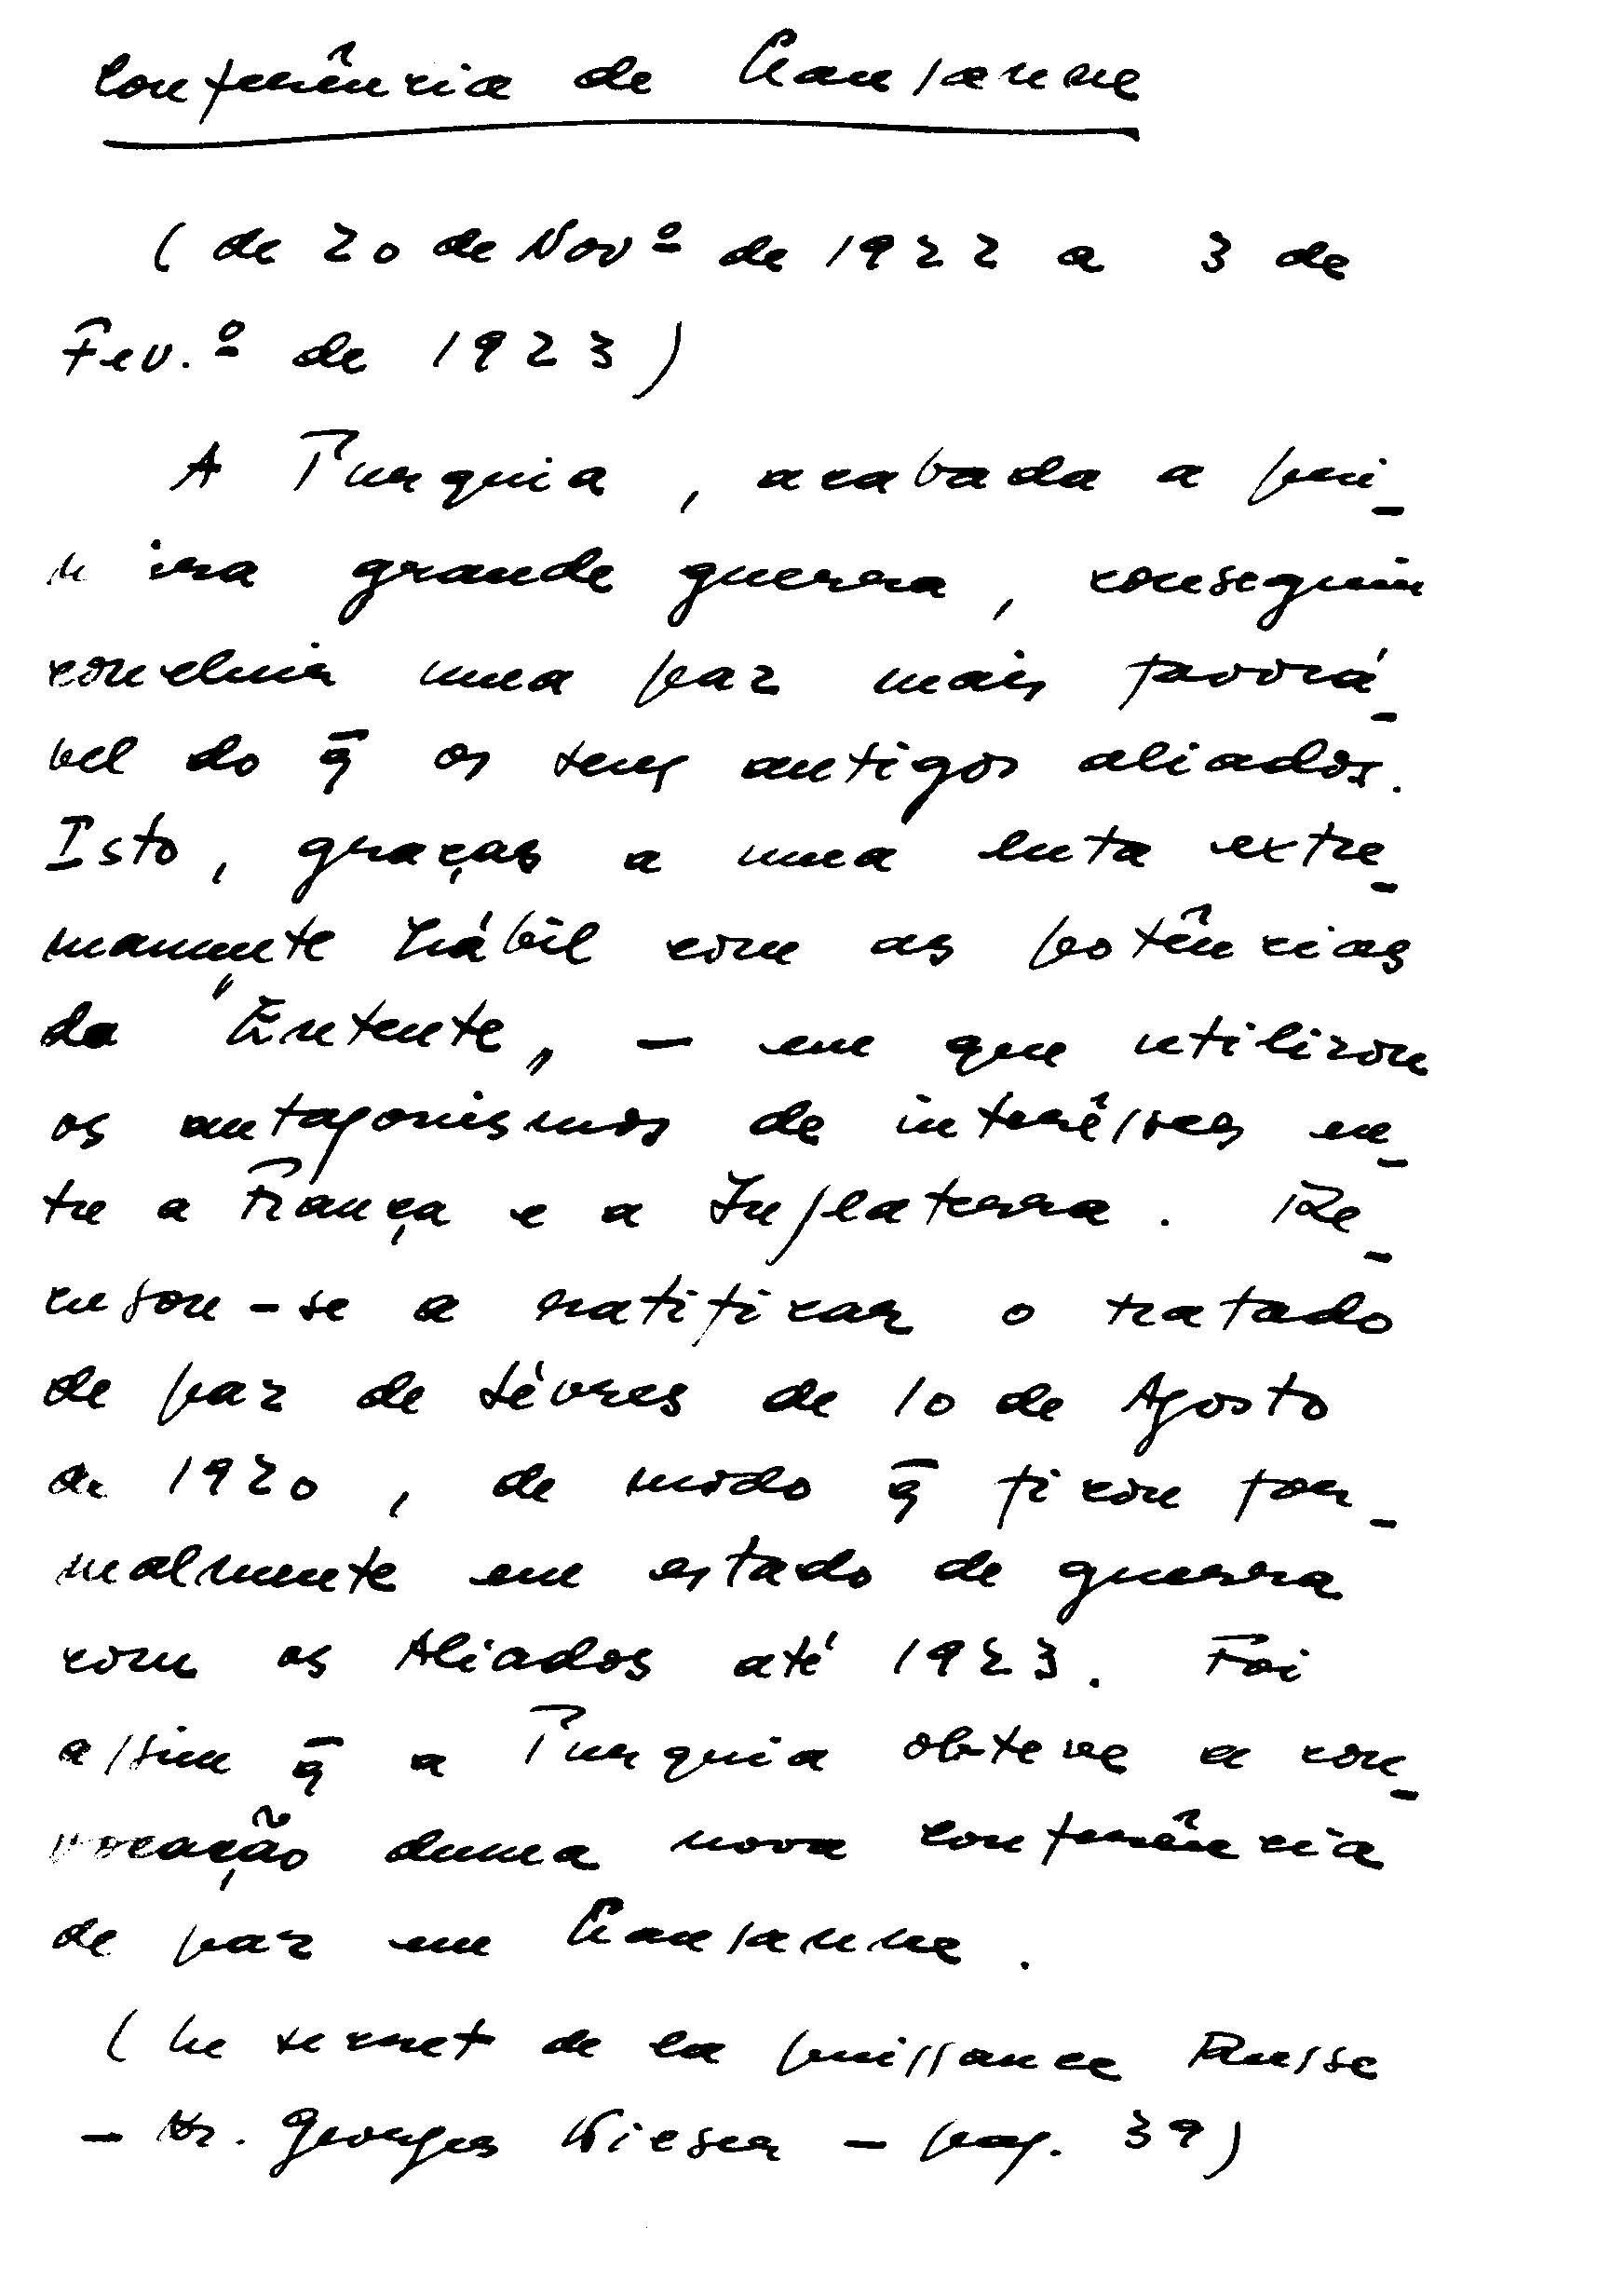 Conferência de Lausanne
( de 20 de Novº de 1922 a 3 de
Fev.º de 1923 )
A Turquia , acabada a pri-
meira grande guerra , conseguiu
concluir uma paz mais favorá-
vel do q̄ os seus antigos aliados.
Isto , graças a uma luta extre-
mamente hábil com as potências
da "Entente„ — em que utilizou
os antagonismos de interêsses en-
tre a França e a Inglaterra . Re-
cusou-se a ratificar o tratado
de paz de Sèvres de 10 de Agosto
de 1920 , de modo q̄ ficou for-
malmente em estado de guerra
com os Aliados até 1923. Foi
assim q̄ a Turquia obteve a con-
vocação duma nova conferência
de paz em Lausanne .
( Le secret de la puissance Russe
— Dr. Georges Wieser — pag. 39 )